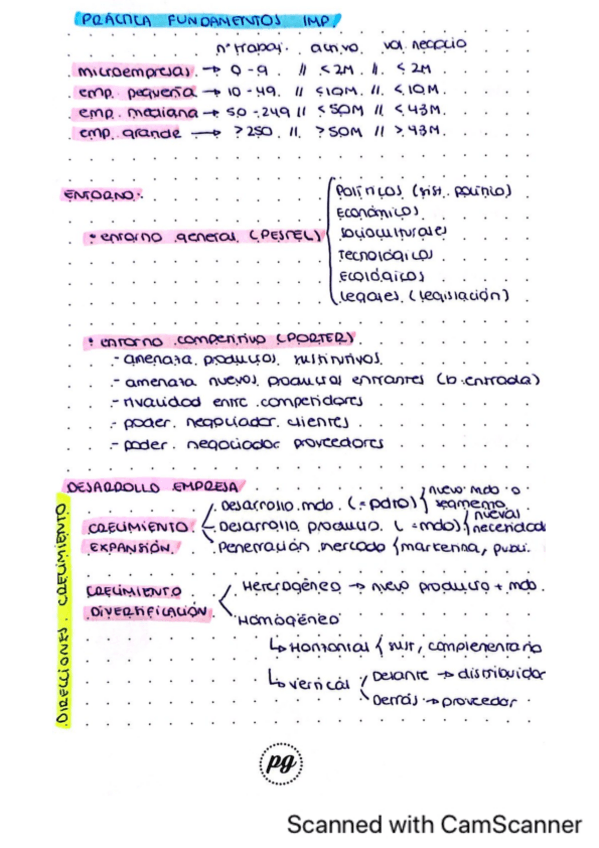 PRÁCTICA FUNDAMENTOS IMP!
nº trabaj. activo. vol. negocio
microempresas → 0-9 // < 2M // < 2M.
emp. pequeña → 10-49. // ≤10M. // ≤10M.
emp. mediana → 50-249 // ≤50M // <43M.
emp. grande → >250. // >50M // >43M.
ENTORNO:
• entorno general (PESTEL)
Políticos (sist. político)
Económicos
Socioculturales
Tecnológicos
Ecológicos
Legales (legislación)
• entorno competitivo (PORTER)
- amenaza productos sustitutivos
- amenaza nuevos productos entrantes (b. entrada)
- rivalidad entre competidores
- poder negociador clientes
- poder negociador proveedores
DESARROLLO EMPRESA
DIRECCIONES CRECIMIENTO
CRECIMIENTO EXPANSIÓN
Desarrollo mdo. (=pdto) { nuevo mdo o segmento
Desarrollo producto (=mdo) { nuevas necesidad
Penetración mercado { marketing, publi.
CRECIMIENTO DIVERSIFICACIÓN
Heterogéneo → nuevo producto + mdo.
Homogéneo
↳ Horizontal { sust, complementario
↳ vertical
Delante → distribuidor
Detrás → proveedor
pg
Scanned with CamScanner